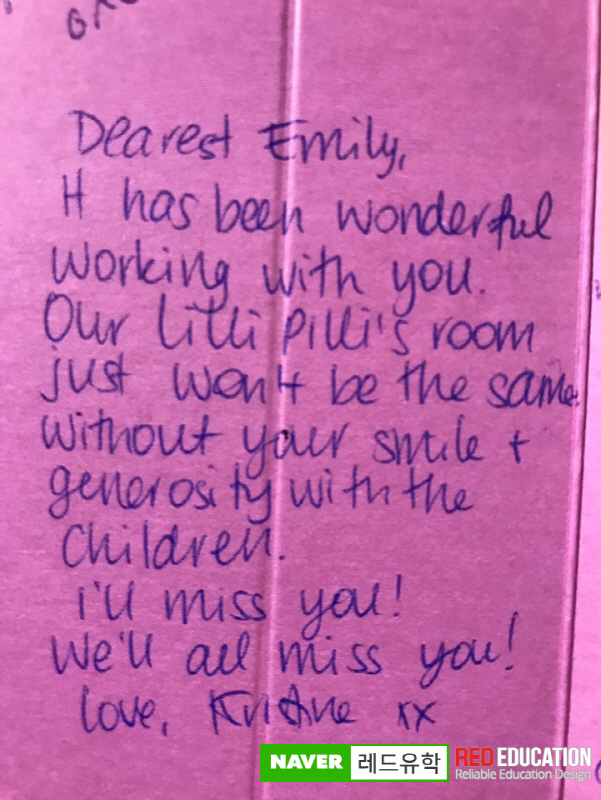 Dearest Emily,
It has been wonderful
working with you.
Our Lilli Pilli's room
just won't be the same
without your smile +
generosity with the
children.
I'll miss you!
We'll all miss you!
Love, Kristine xx
NAVER 레드유학 RED EDUCATION
Reliable Education Design